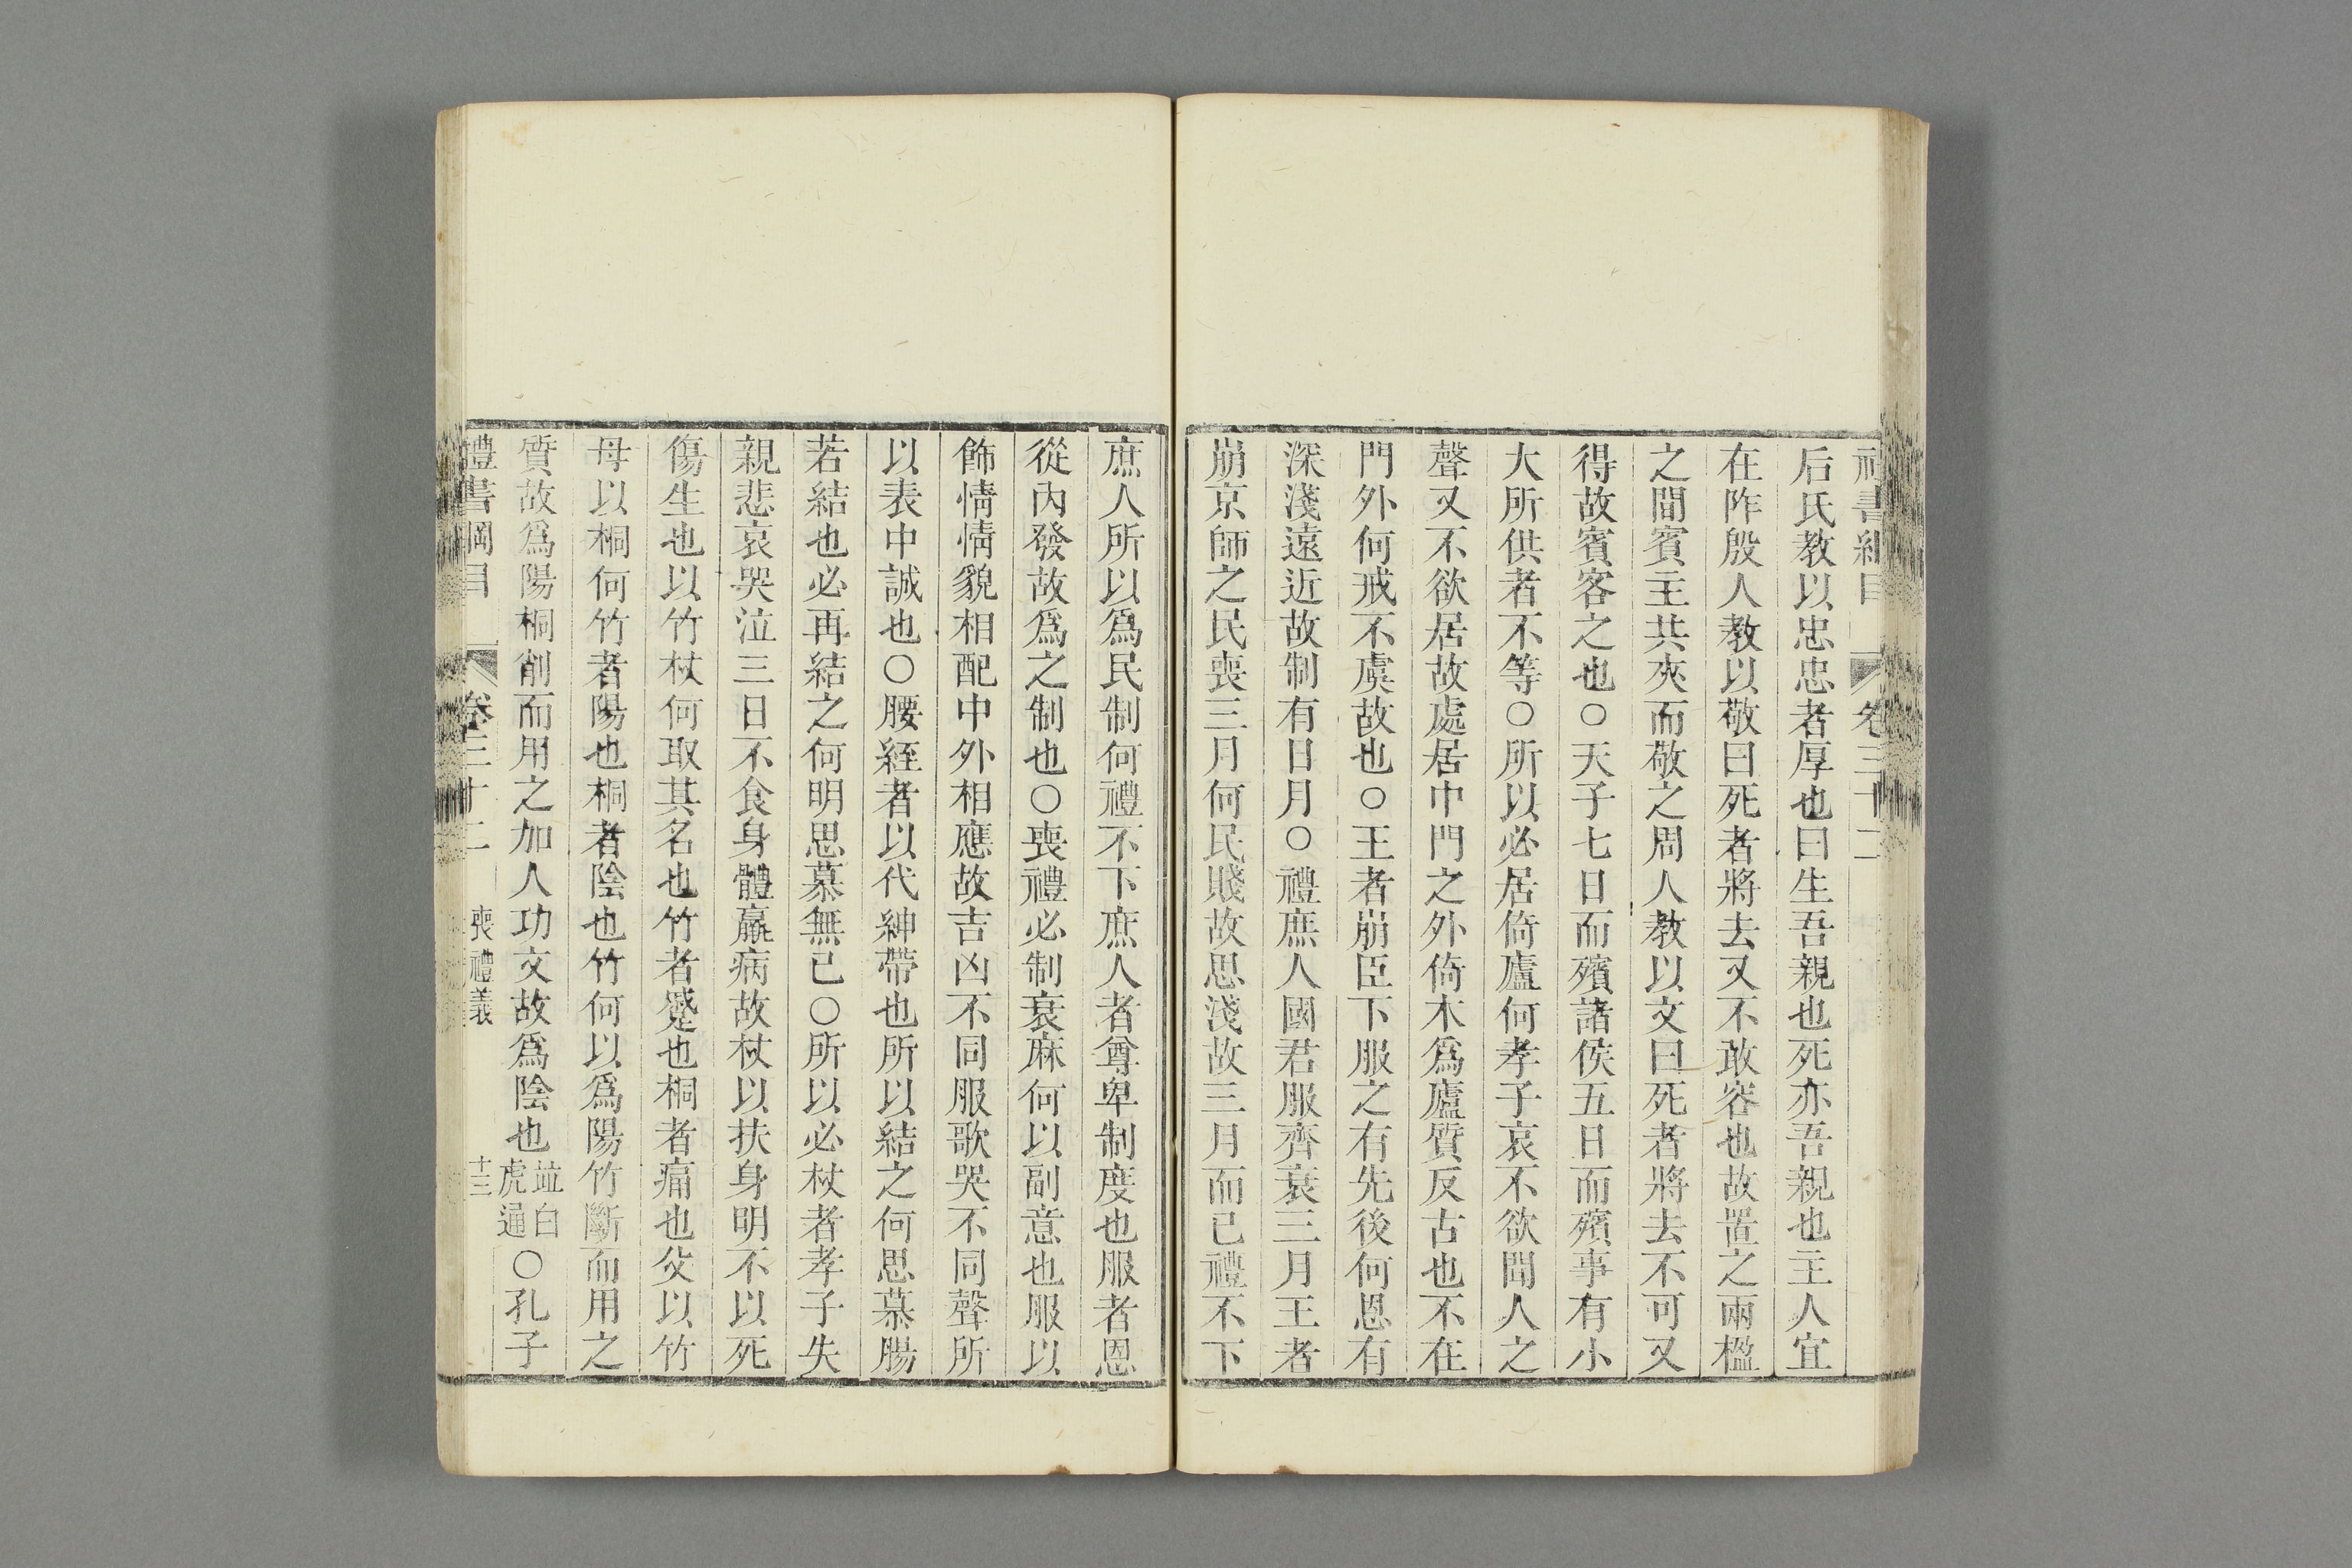 禮書綱目 卷三十二
后氏教以忠忠者厚也曰生吾親也死亦吾親也主人宜
在阼殷人教以敬曰死者將去又不敢容也故置之兩楹
之間賓主共夾而敬之周人教以文曰死者將去不可又
得故賓客之也○天子七日而殯諸侯五日而殯事有小
大所供者不等○所以必居倚廬何孝子哀不欲聞人之
聲又不欲居故處居中門之外倚木爲廬質反古也不在
門外何戒不虞故也○王者崩臣下服之有先後何恩有
深淺遠近故制有日月○禮庶人國君服齊衰三月王者
崩京師之民喪三月何民賤故思淺故三月而已禮不下
庶人所以爲民制何禮不下庶人者尊卑制度也服者恩
從內發故爲之制也○喪禮必制衰麻何以副意也服以
飾情情貌相配中外相應故吉凶不同服歌哭不同聲所
以表中誠也○腰絰者以代紳帶也所以結之何思慕腸
若結也必再結之何明思慕無已○所以必杖者孝子失
親悲哀哭泣三日不食身體羸病故杖以扶身明不以死
傷生也以竹杖何取其名也竹者蹙也桐者痛也父以竹
母以桐何竹者陽也桐者陰也竹何以爲陽竹斷而用之
質故爲陽桐削而用之加人功文故爲陰也並白虎通○孔子
禮書綱目 卷三十二 喪禮義 十三